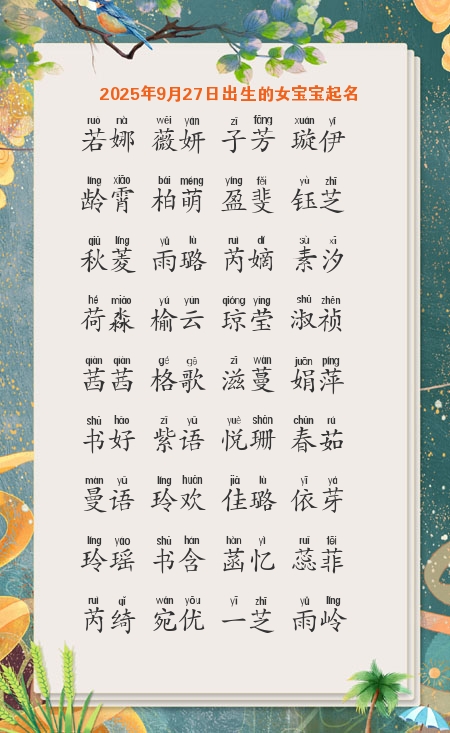 2025年9月27日出生的女宝宝起名
ruò nà wēi yán zǐ fāng xuán yī
若娜 薇妍 子芳 璇伊
líng xiāo bái méng yíng fěi yù zhī
龄霄 柏萌 盈斐 钰芝
qiū líng yǔ lù ruì dí sù xī
秋菱 雨璐 芮嫡 素汐
hé miǎo yú yún qióng yíng shū zhēn
荷淼 榆云 琼莹 淑祯
qiàn qiàn gé gē zī wàn juān píng
茜茜 格歌 滋蔓 娟萍
shū hǎo zǐ yǔ yuè shān chūn rú
书好 紫语 悦珊 春茹
màn yǔ líng huān jiā lù yī yá
曼语 玲欢 佳璐 依芽
líng yáo shū hán hàn yì ruǐ fēi
玲瑶 书含 菡忆 蕊菲
ruì qǐ wǎn yōu yī zhī yǔ lǐng
芮绮 宛优 一芝 雨岭